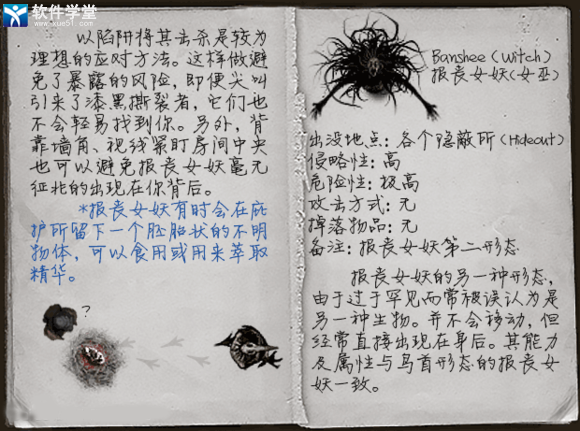 软件学堂
www.xue51.com
以陷阱将其击杀是较为
理想的应对方法。这样做避
免了暴露的风险，即便尖叫
引来了漆黑撕裂者，它们也
不会轻易找到你。另外，背
靠墙角、视线紧盯房间中央
也可以避免报丧女妖毫无
征兆的出现在你背后。
*报丧女妖有时会在庇
护所留下一个胚胎状的不明
物体，可以食用或用来萃取
精华。
?
Banshee（Witch）
报丧女妖（女巫）
出没地点：各个隐蔽所（Hideout）
侵略性：高
危险性：极高
攻击方式：无
掉落物品：无
备注：报丧女妖第二形态
报丧女妖的另一种形态，
由于过于罕见而常被误认为是
另一种生物。并不会移动，但
经常直接出现在身后。其能力
及属性与鸟首形态的报丧女
妖一致。